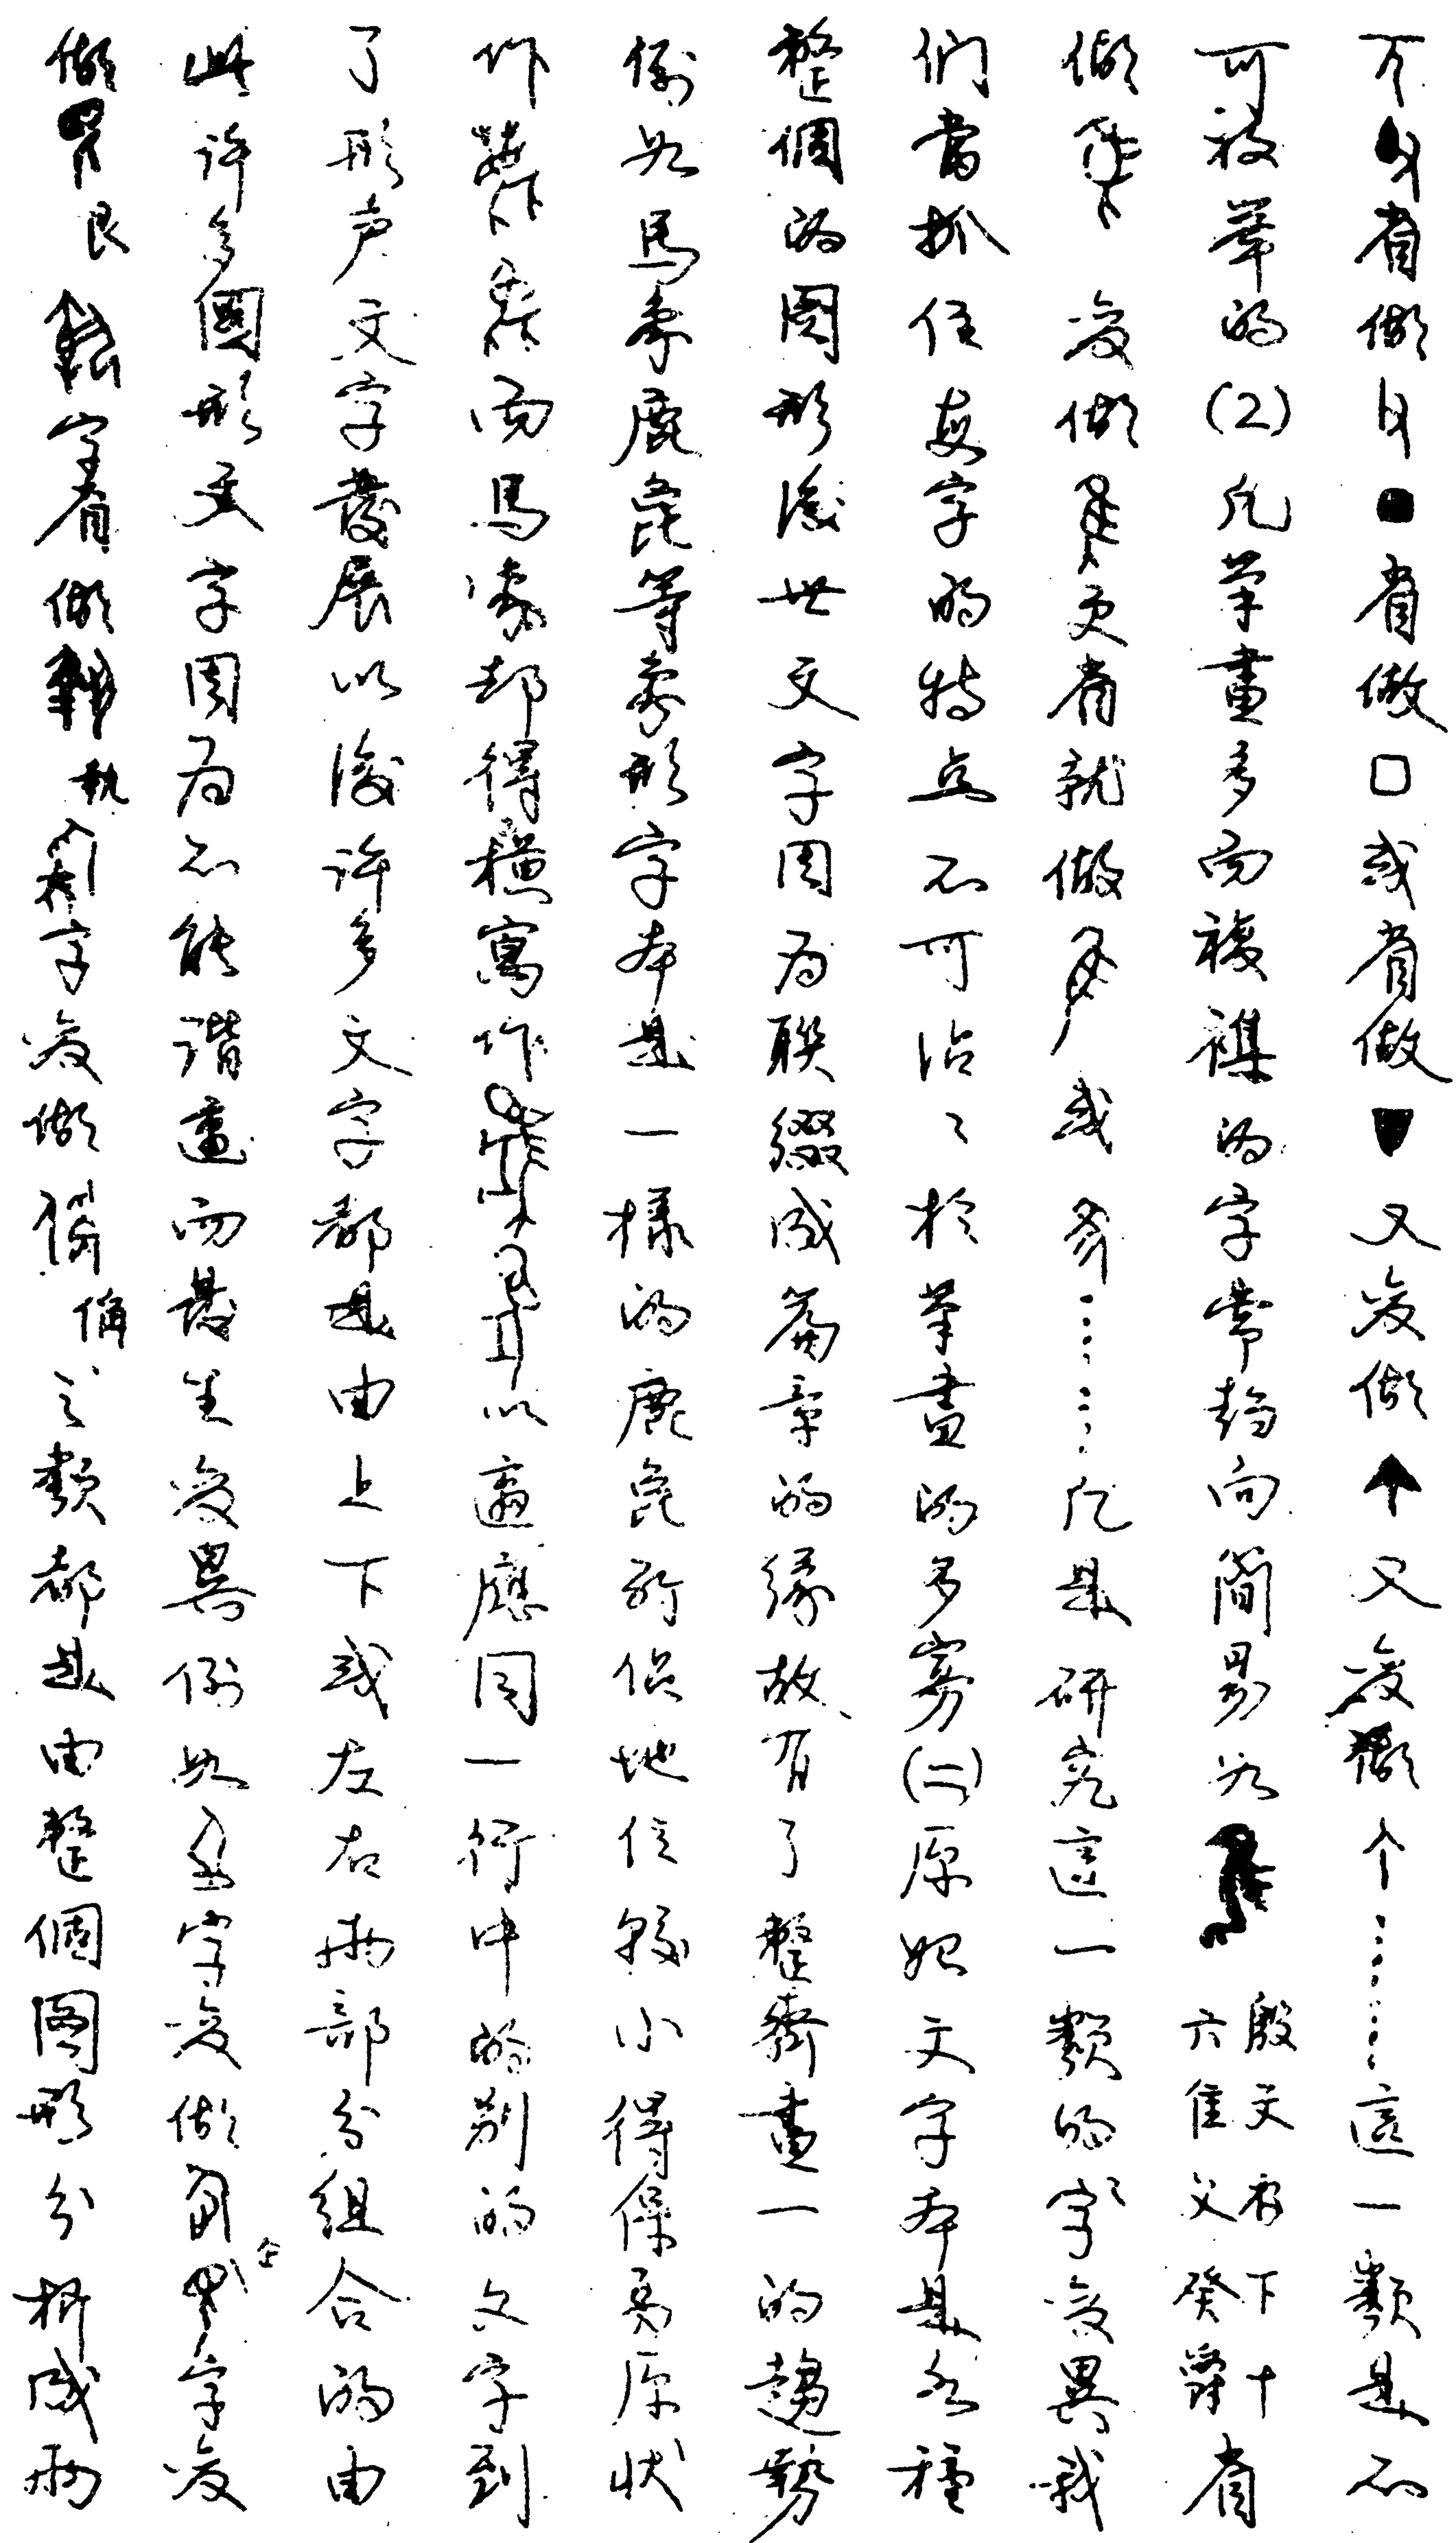 丅 省做 省做口或省做 又变做 又变做个……這一類是不
可被举的(2)凡筆畫多而複襍的字常趋向簡易如 殷文存下十六隹父癸爵省
做 变做 更省就做 或 ……凡是研究這一類的字之变異我
們當抓住每字的特点不可沾沾於筆畫的多寡(二)原始文字本是各種
整個的图形後世文字因为联缀成篇章的缘故有了整齊畫一的趨勢
例如馬象鹿兔等象形字本是一樣的鹿兔所佔地位較小得保留原状
作 而馬象却得横寫作 以適應同一行中的别的文字到
了形声文字發展以後許多文字都是由上下或左右兩部分组合的由
此許多圖形文字因为不能谐适而發生变異例如 字变做 企 字变
做 艮 字省做 執 字变做 俻之類都是由整個图形分析成兩